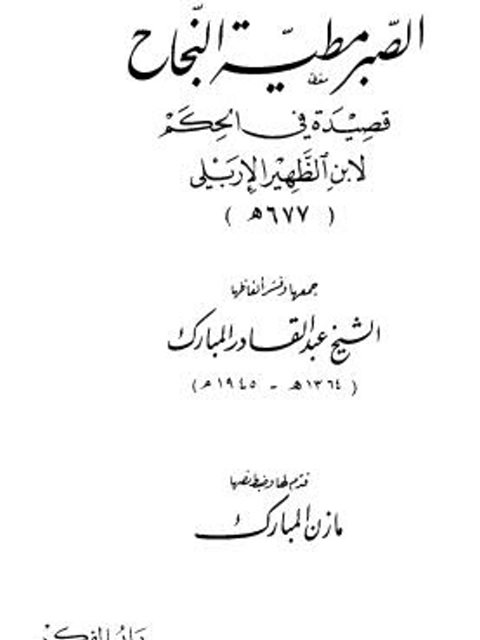 الصّبر مطيّة النّجاح
قَصِيْدَة في الحِكَمْ
لابنِ الظَّهِيْر الإربَيْلى
( ٦٧٧هـ )
جمعها وفسّر ألفاظها
الشيخ عبدالقادر المبارك
( ١٣٦٤هـ - ١٩٤٥م )
قدّم لها وضبط نصّها
مازن المبارك
دار الفكر